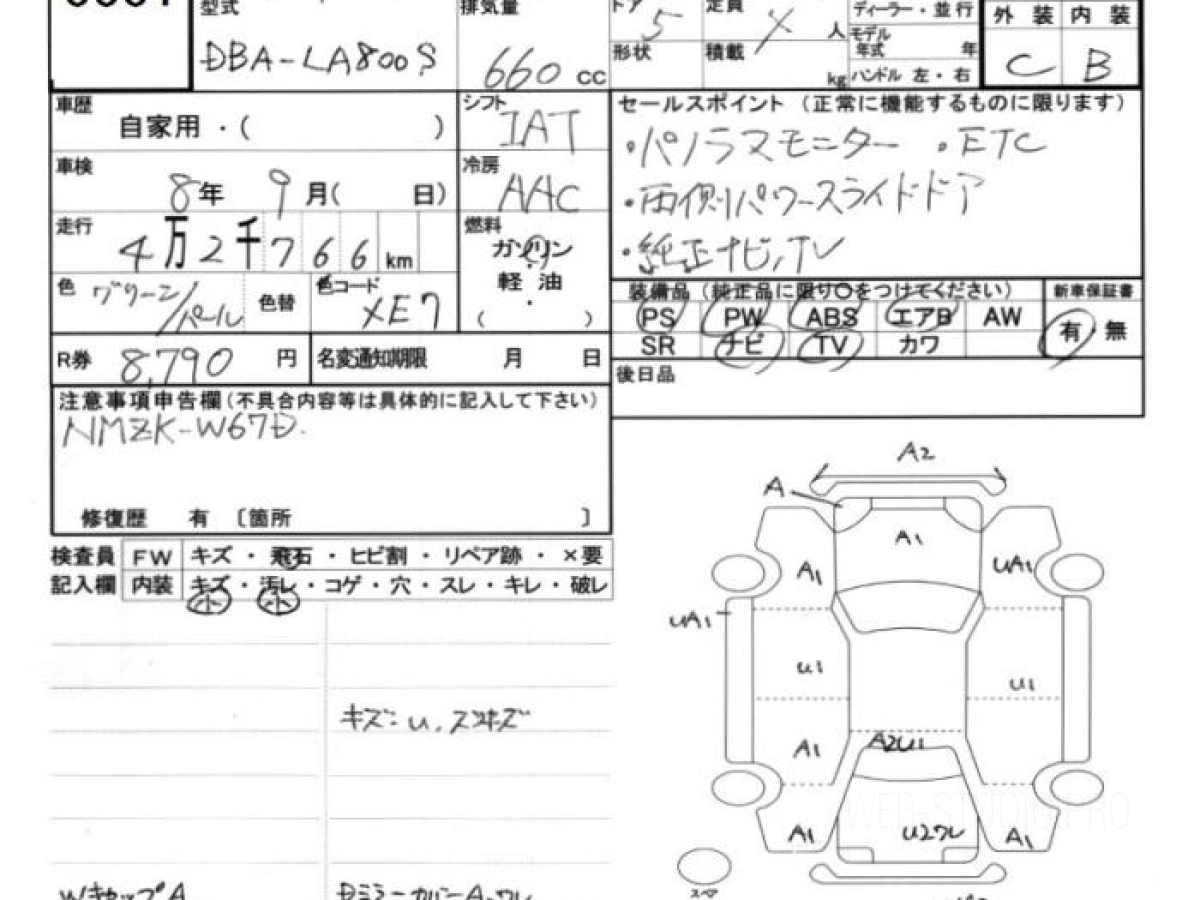 型式
排気量
ドア 5
定員 4 人
ディーラー・並行
外装 内装
DBA-LA800S
660 cc
形状
積載 kg
モデル年式 年
ハンドル 左・右
C B
車歴
自家用・( )
シフト
IAT
セールスポイント (正常に機能するものに限ります)
・パノラマモニター ・ETC
車検
8年 9月( 日)
冷房
AAC
・両側パワースライドドア
走行
4万2千766km
燃料
ガソリン
・
軽油
・
( )
・純正ナビ,TV
色
グリーン/パール
色替
色コード
XE7
装備品 (純正品に限り○をつけてください)
新車保証書
PS PW ABS エアB AW
有・無
SR ナビ TV カワ
R券 8,790 円
名変通知期限 月 日
後日品
注意事項申告欄(不具合内容等は具体的に記入して下さい)
NMZK-W67D.
修復歴 有 〔箇所 〕
検査員 FW キズ・飛石・ヒビ割・リペア跡・×要
記入欄 内装 キズ・汚レ・コゲ・穴・スレ・キレ・破レ
小 小
キズ:U,スリキズ
WキャップA
DミラーカバーA・ワレ
A2
A
A1
A1
UA1
UA1
U1
U1
A1
A2U1
A1
U2ワレ
A1
スペア
WEB-STUDIO.PRO